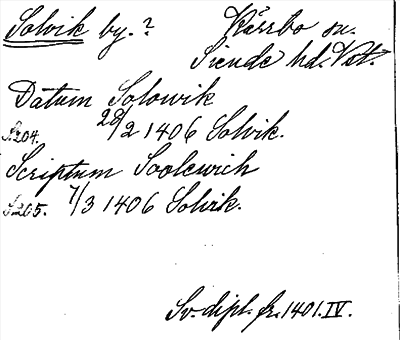 Solvik by.? Kärrbo sn.
Siende hd. Vst.
Datum Solowik
S. 204. 28/2 1406 Solvik.
Scriptum Soolewich
S. 205. 7/3 1406 Solvik.
Sv. dipl. fr. 1401. IV.